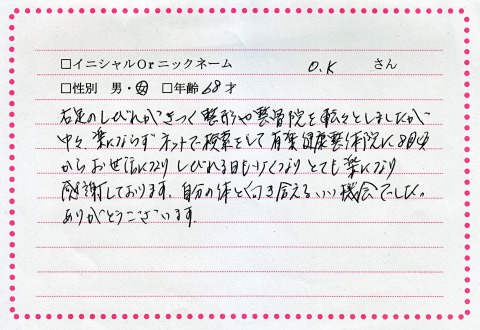 □イニシャルOrニックネーム O.K さん
□性別 男・女 □年齢 68才
右足のしびれがきつく整形や整骨院を転々としましたが
中々楽にならずネットで検索をして有葉健康整体院に8月中
からお世話になり しびれる日も少なくなり とても楽になり
感謝しております。自分の体と向き合えるいい機会でした。
ありがとうございます。